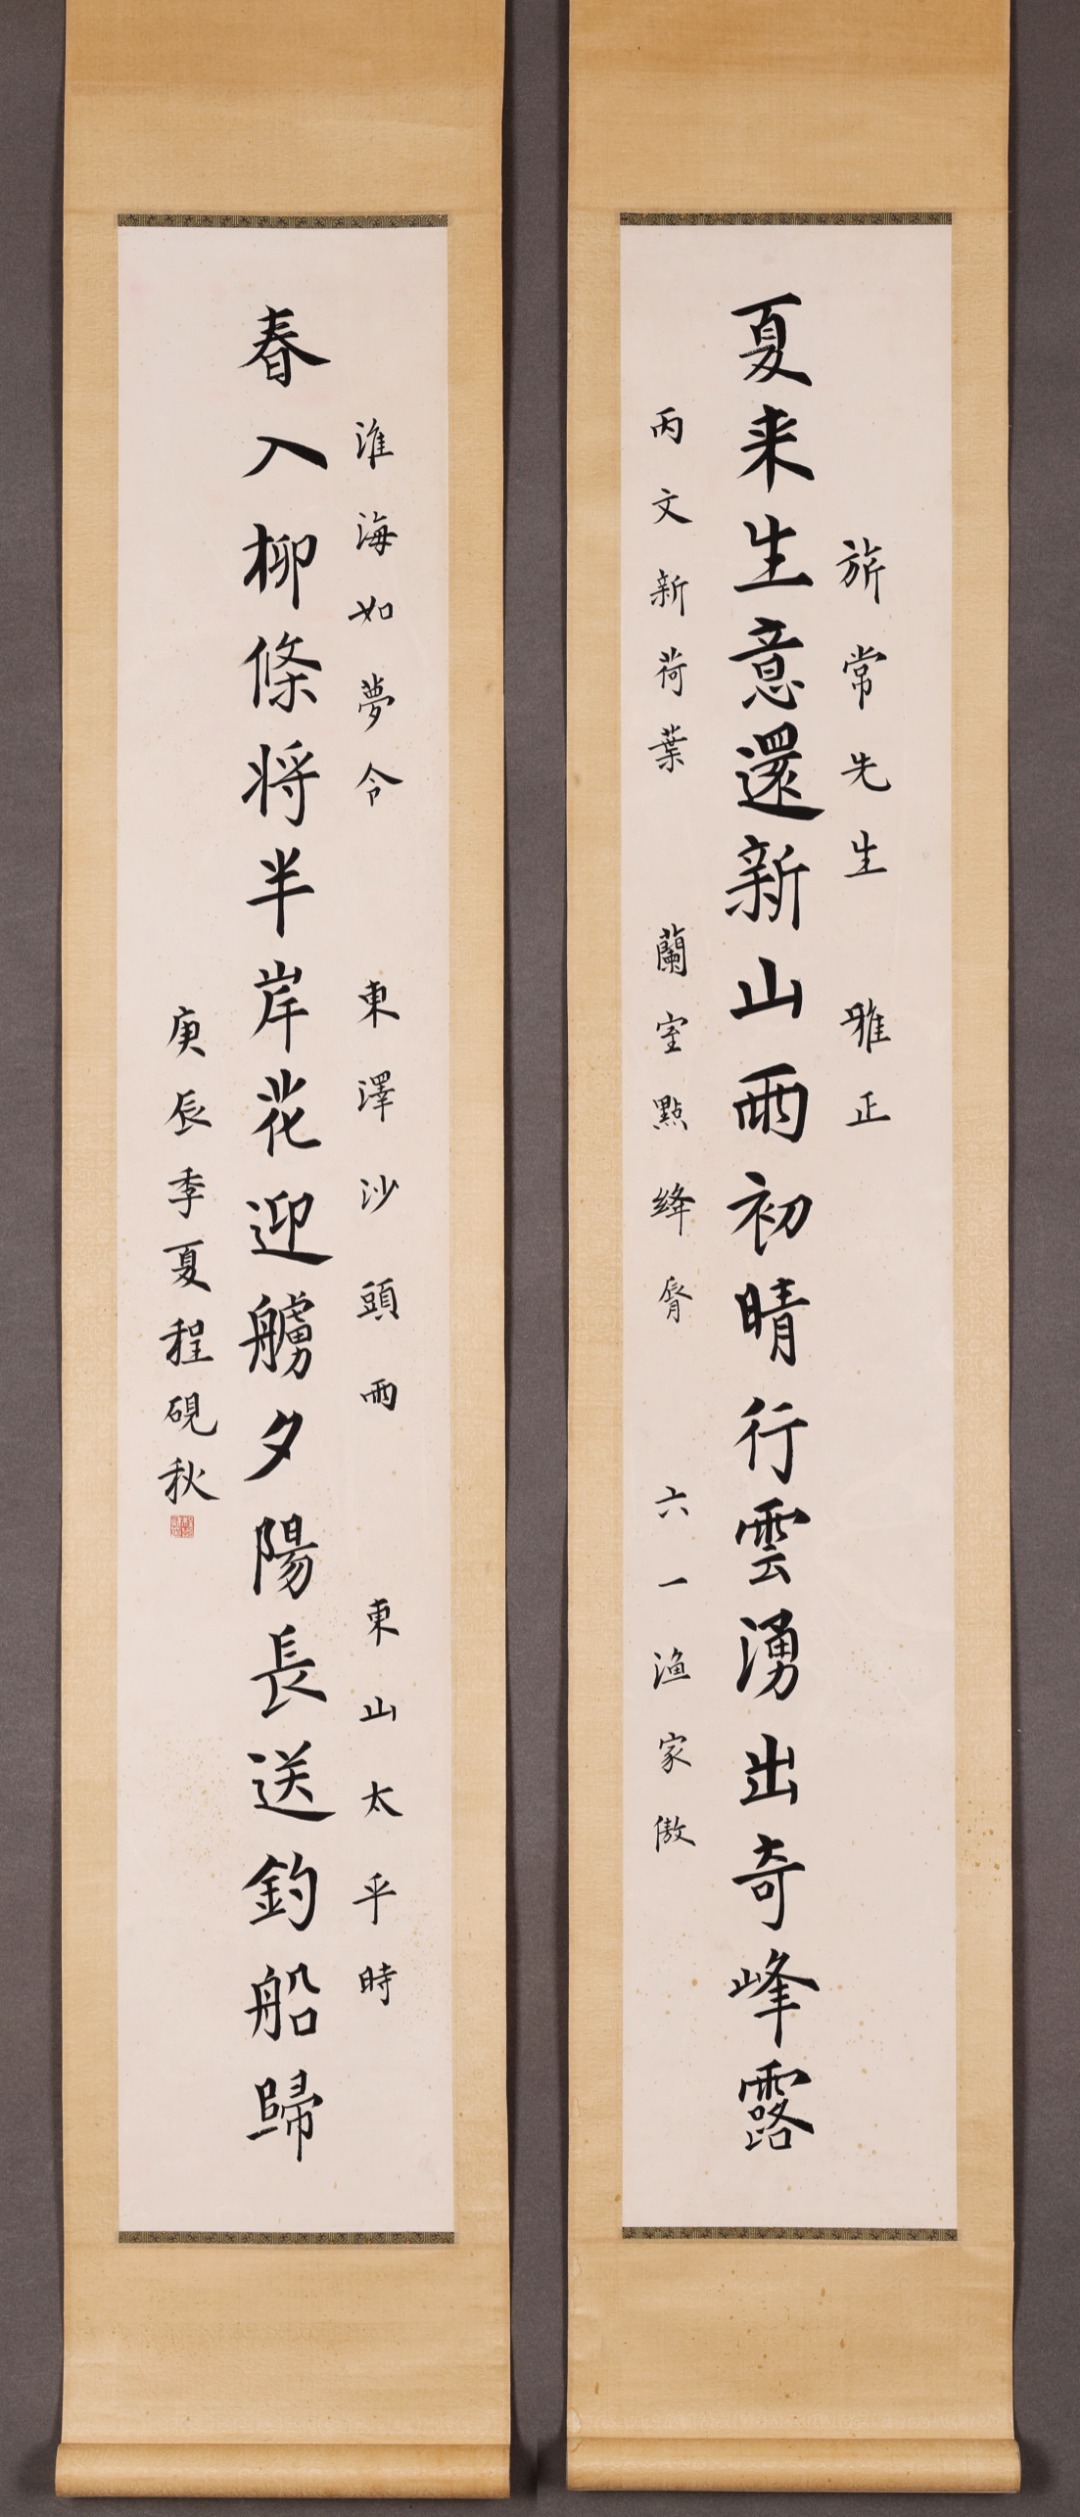 旂常先生　雅正
夏来生意還新山雨初晴行雲湧出奇峰露
丙文新荷葉　蘭室點絳脣　六一漁家傲
淮海如夢令　東澤沙頭雨　東山太平時
春入柳條將半岸花迎艣夕陽長送釣船歸
庚辰季夏程硯秋